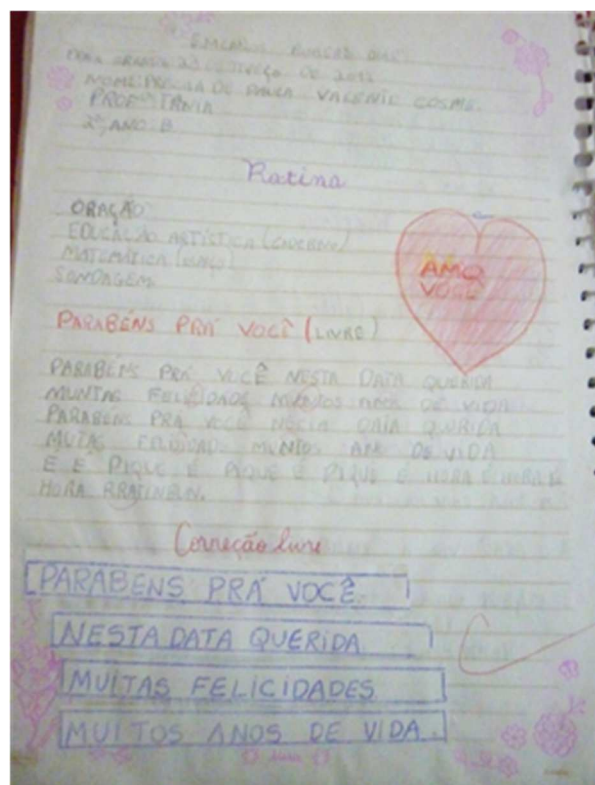 DE 2012
NOME: DE PAULA VALENTE COSME.
PROFª TÂNIA
2º ANO: B
Rotina
ORAÇÃO
EDUCAÇÃO ARTÍSTICA (CADERNO)
MATEMÁTICA
SONDAGEM
AMO
VOCÊ
PARABÉNS PRÁ VOCÊ (LIVRE)
PARABENS PRÁ VOCÊ NESTA DATA QUERIDA
MUNTAS FELISIDADS MUNTOS ANOS DE VIDA
PARABENS PRA VOCÊ NESTA DATA QURIDA
MUTAS MUNTOS DE VIDA
E E PIQUE É PIQUE É PIQUE É HORA É HORA É
HORA
Correção livre
PARABENS PRÁ VOCÊ.
NESTA DATA QUERIDA
MUITAS FELICIDADES
MUITOS ANOS DE VIDA.